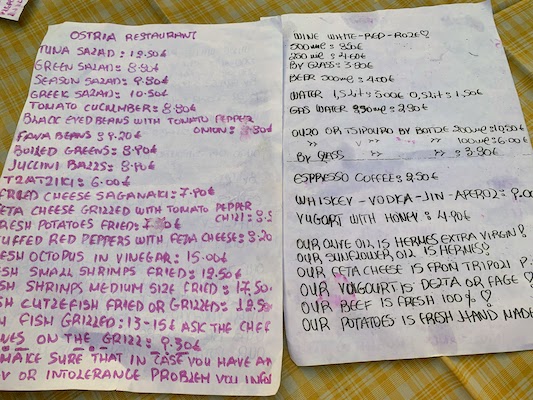 OSTRIA RESTAURANT
TUNA SALAD: 12.50€
GREEN SALAD: 8.90€
SEASON SALAD: 9.80€
GREEK SALAD: 10.50€
TOMATO CUCUMBER: 8.80€
BLACK EYED BEANS WITH TOMATO PEPPER
ONION: 9.80€
FAVA BEANS: 9.20€
BOILED GREENS: 8.90€
JUCCINI BALLS: 8.90€
TZATZIKI: 6.00€
FRIED CHEESE SAGANAKI: 7.90€
FETA CHEESE GRILLED WITH TOMATO PEPPER
CHILI: 8.5
FRESH POTATOES FRIED:
STUFFED RED PEPPERS WITH FETA CHEESE: 8.20
ESH OCTOPUS IN VINEGAR: 15.00€
ESH SMALL SHRIMPS FRIED: 12.50€
SH SHRIMPS MEDIUM SIZE FRIED: 17.50.
SH CUTLEFISH FRIED OR GRILLED: 12.50
H FISH GRILLED: 13-15€ ASK THE CHEF
ON THE GRILL: 9.30€
MAKE SURE THAT IN CASE YOU HAVE AN
Y OR INTOLERANCE PROBLEM YOU INFO
WINE WHITE-RED-ROZE♡
500ml:
250ml: 4.60€
BY GLASS: 3.80€
BEER 500ml: 4.50€
WATER 1,5Lit: 0,5Lit: 1,50€
GAS WATER 2,80€
OUZO OR TSIPOURO BY BOTTLE 200ml: 10.50€
" " " 100ml: 6.00€
BY GLASS " " : 3.80€
ESPRESSO COFFEE: 2,50€
WHISKEY-VODKA-JIN-APEROL: 9.00
YUGORT WITH HONEY: 4.90€
OUR OLIVE OIL IS HERMES EXTRA VIRGIN!
OUR SUNFLOWER OIL IS HERMES!
OUR FETA CHEESE IS FROM TRIPOLI P
OUR YUGOURT IS DELTA OR FAGE♡
OUR BEEF IS FRESH 100%♡
OUR POTATOES IS FRESH HAND MADE